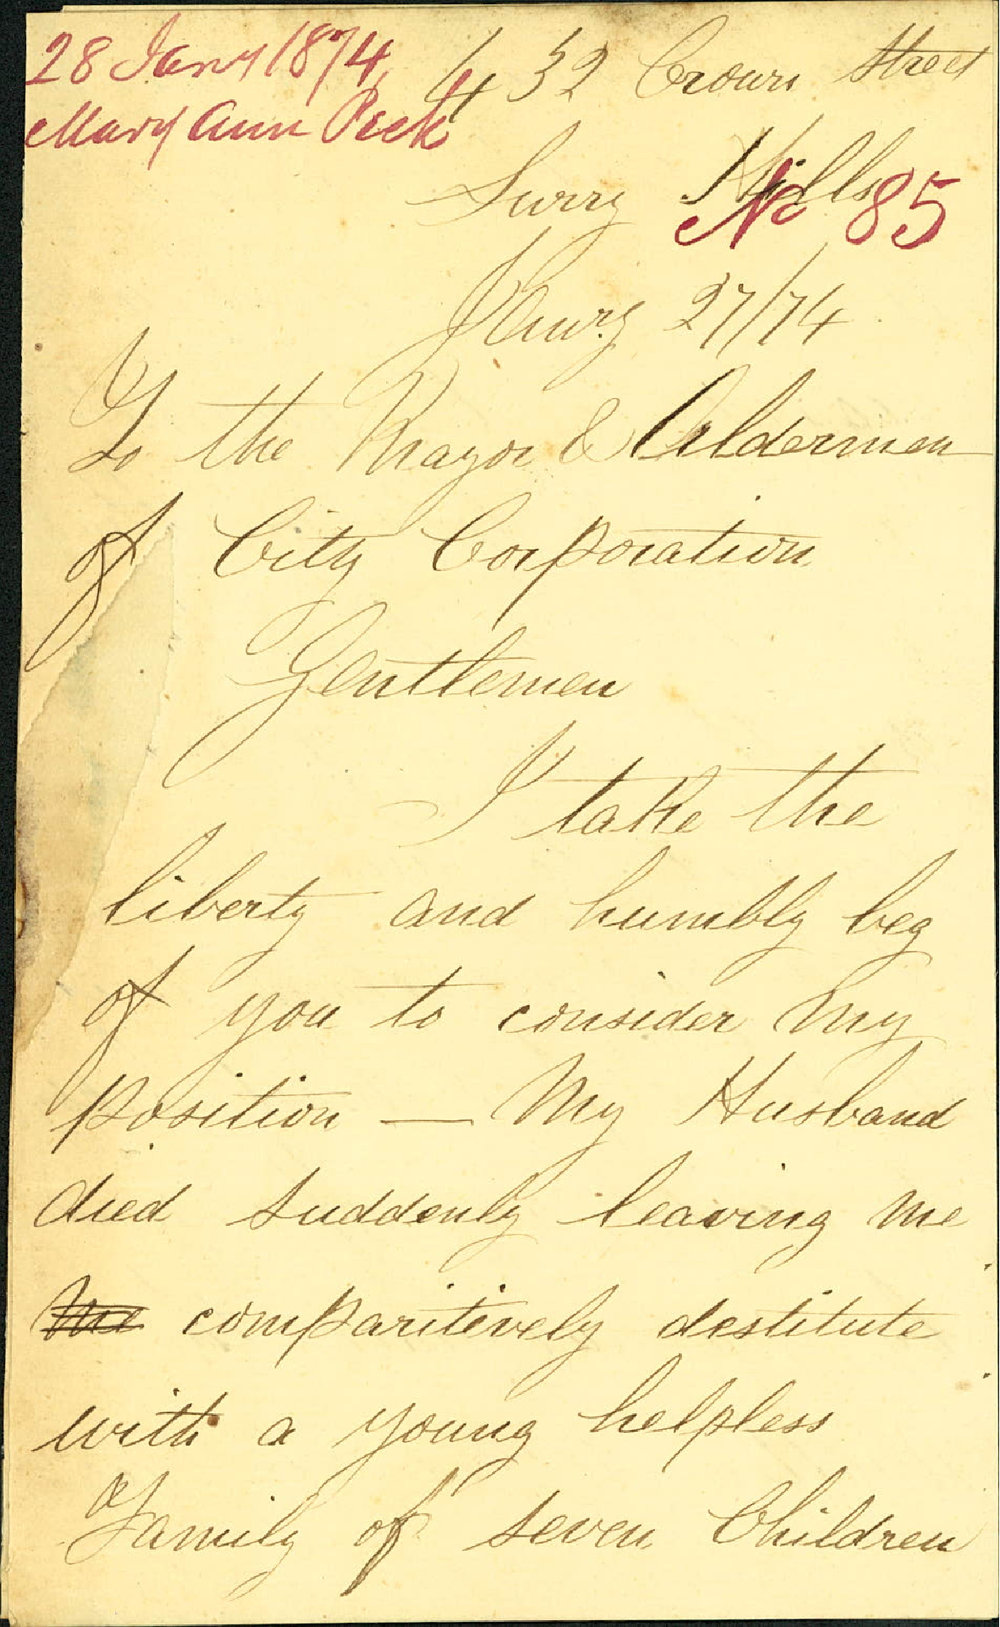 28 Jany 1874,
Mary Ann Peek
432 Crown Street
Surry Hills
No 85
Jany 27/74
To the Mayor & Aldermen
of City Corporation
Gentlemen
I take the
liberty and humbly beg
of you to consider my
position — My Husband
died suddenly leaving me
me comparitively destitute
with a young helpless
Family of seven Children